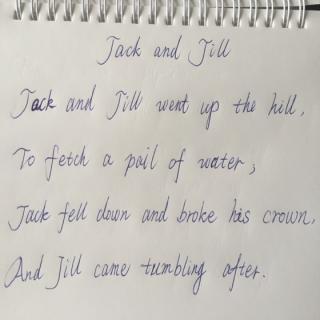 Jack and Jill
Jack and Jill went up the hill,
To fetch a pail of water;
Jack fell down and broke his crown,
And Jill came tumbling after.